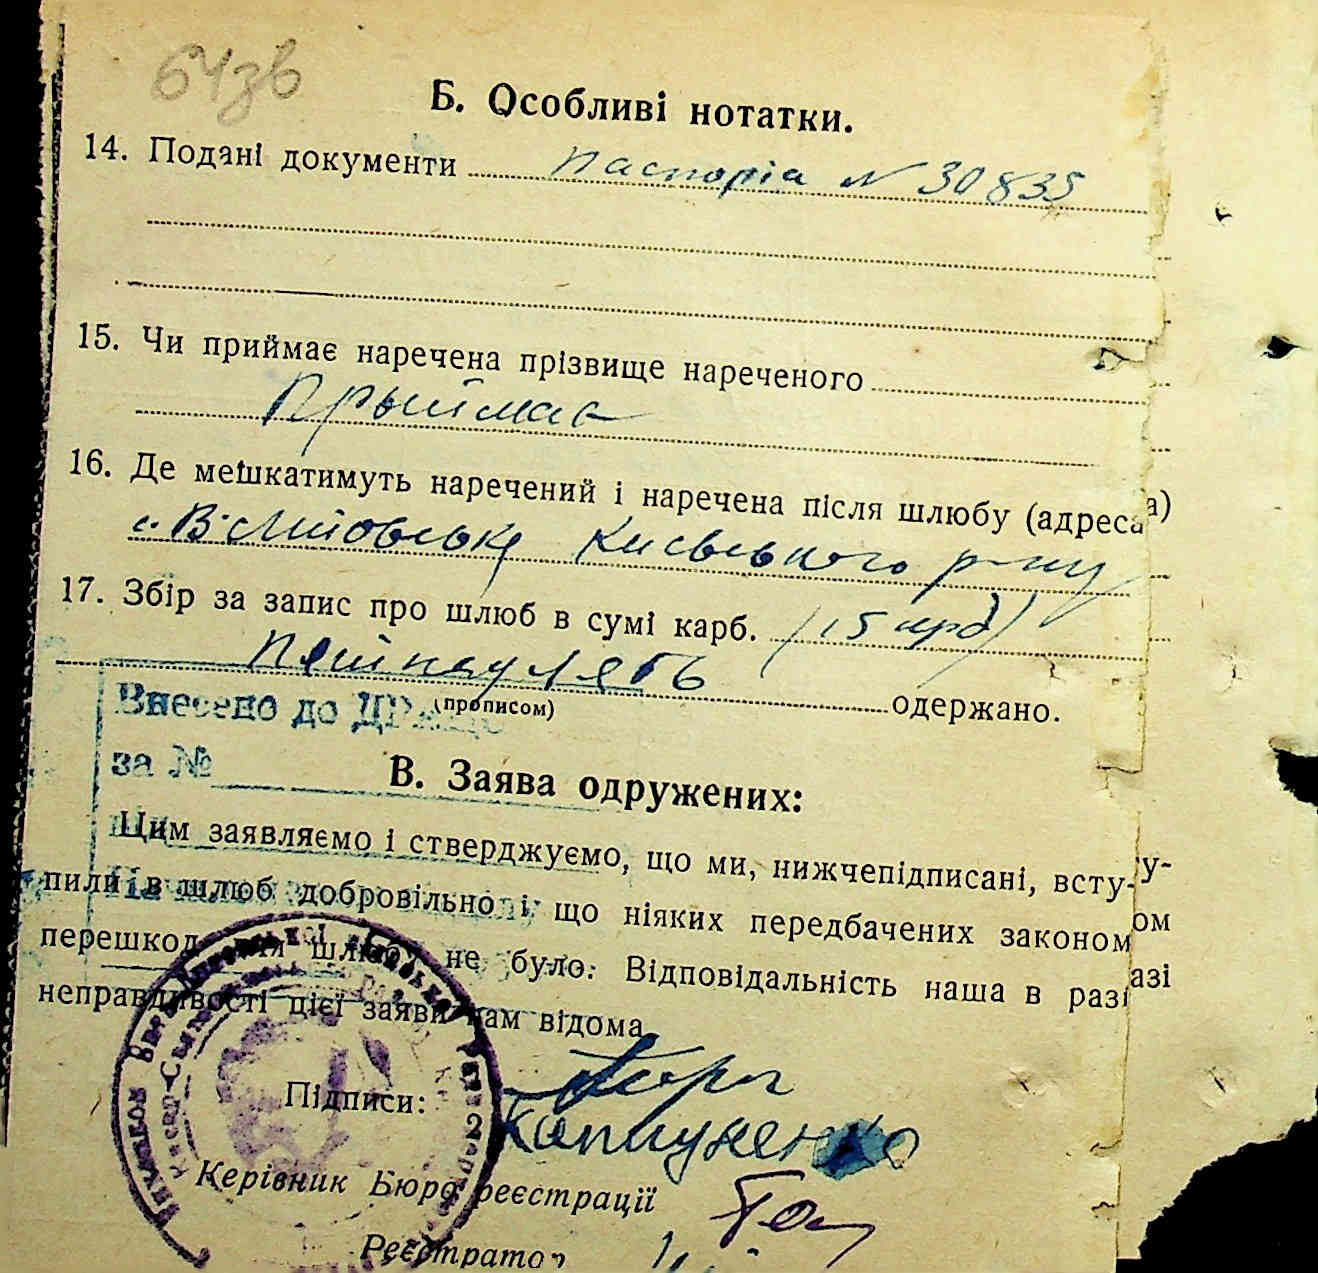 64зв
Б. Особливі нотатки.
14. Подані документи Паспорта N 30835
15. Чи приймає наречена прізвище нареченого
Прыймає
16. Де мешкатимуть наречений і наречена після шлюбу (адреса)
с. В-Литовська Києвського р-ну
17. Збір за запис про шлюб в сумі карб. (15 крб)
одержано.
(прописом)
Внесено до
за №
В. Заява одружених:
Цим заявляємо і стверджуємо, що ми, нижчепідписані, всту-
пили в шлюб добровільно і що ніяких передбачених законом
перешкод для шлюбу не було. Відповідальність наша в разі
неправдивості цієї заяви нам відома.
Підписи:
Керівник Бюро реєстрації
Реєстратор